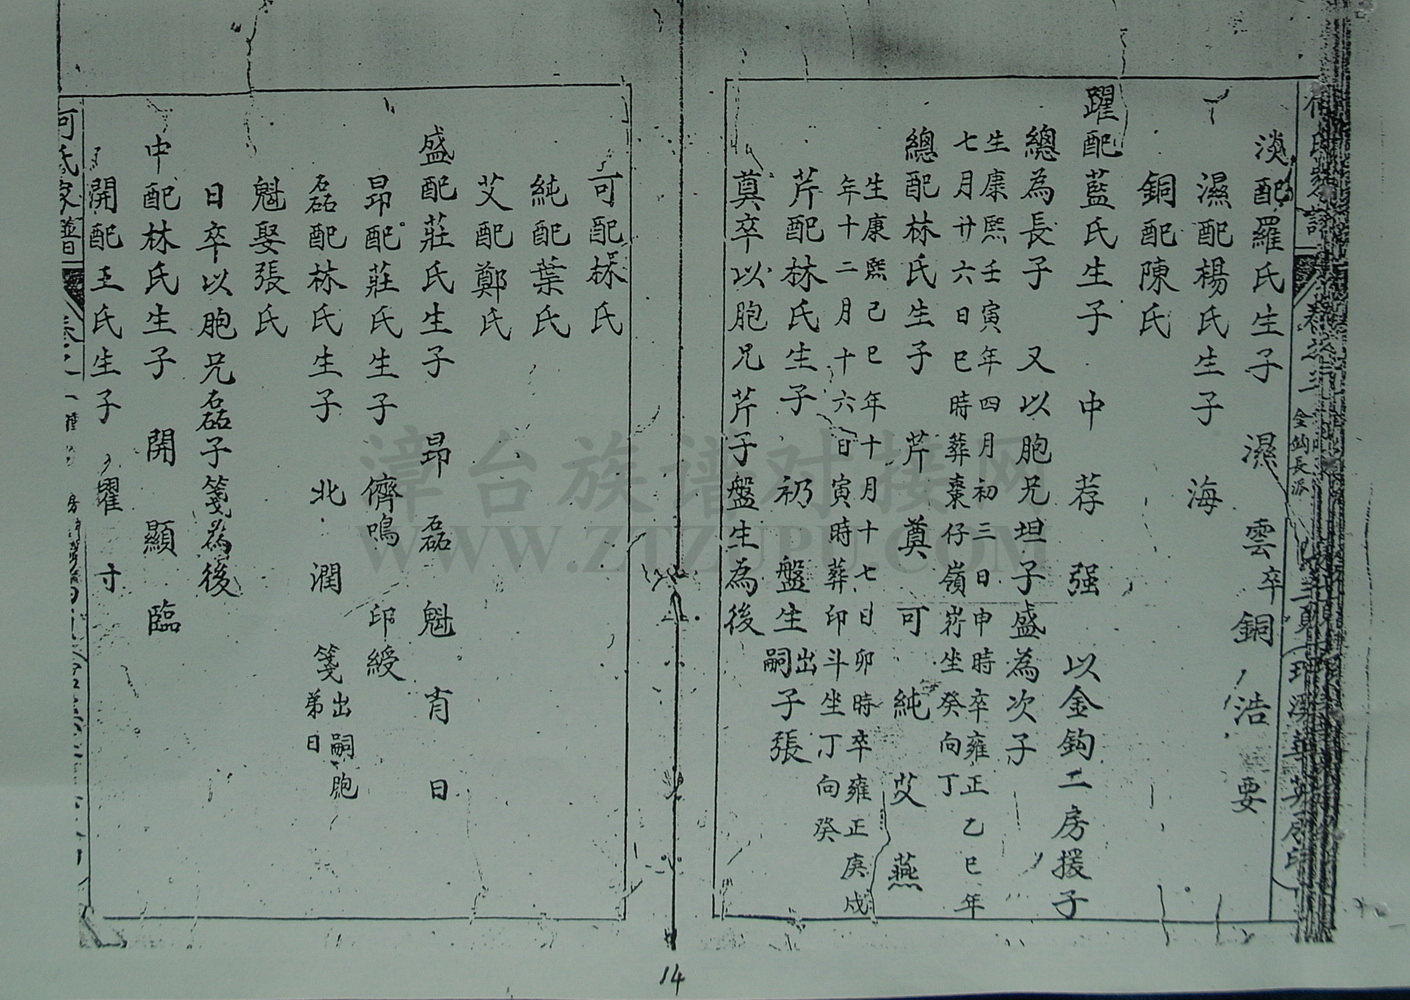 金鈎長派
淡配羅氏生子 濕 雲卒 銅 浩 要
濕配楊氏生子 海
銅配陳氏
躍配藍氏生子 中 荐 强 以金鈎二房援子
總為長子 又以胞兄坦子盛為次子
生康熙壬寅年四月初三日申時卒雍正乙巳年
七月廿六日巳時葬棗仔嶺 坐癸向丁
總配林氏生子 芹 奠 可 純 艾 燕
生康熙己巳年十月十七日卯時卒雍正庚戌
年十二月十六日寅時葬印斗坐丁向癸
芹配林氏生子 礽 盤生出嗣子張
奠卒以胞兄芹子盤生為後
可配林氏
純配葉氏
艾配鄭氏
盛配莊氏生子 昂 磊 魁 育 日
昂配莊氏生子 儕鳴 印綬
磊配林氏生子 北 潤 箋出嗣胞弟日
魁娶張氏
日卒以胞兄磊子箋為後
中配林氏生子 開 顯 臨
開配王氏生子 耀 寸
何氏家譜
漳台族谱对接网
WWW.ZTZUPU.COM
14